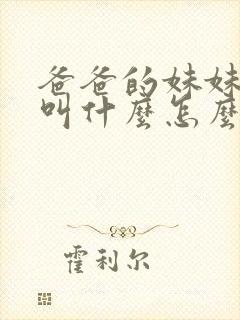 爸爸的妹妹
叫什麼怎麼
霍利尔